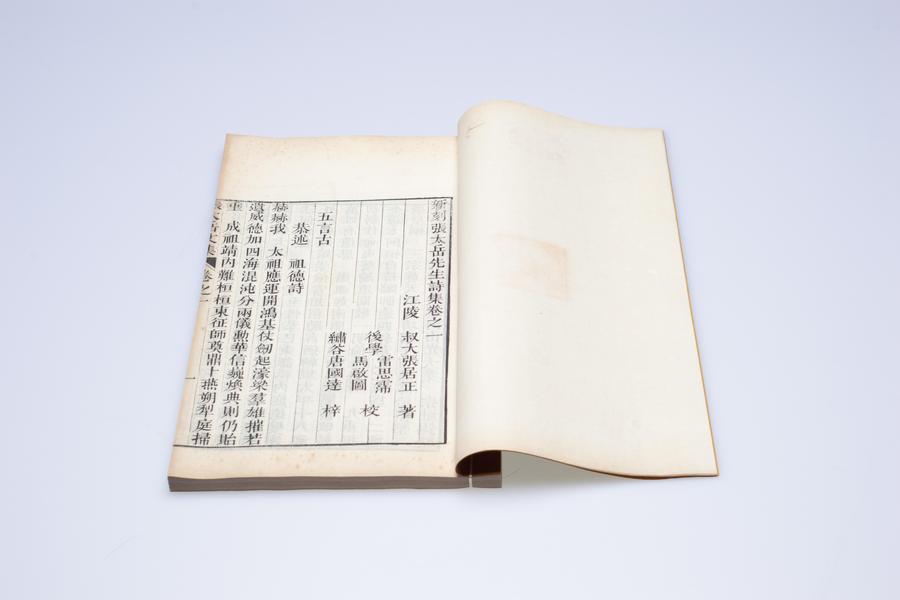 新刻張太岳先生詩集卷之一
江陵 叔大張居正 著
後學 雷思霈
馬啟圖 校
繡谷唐國達 梓
五言古
恭述 祖德詩
赫赫我 太祖應運開鴻基仗劒起濠梁羣雄摧若
遺威德加四海混沌分兩儀勳華信巍煥典則仍貽
成祖靖內難桓桓東征師奠鼎十燕朔犁庭掃
張太岳文集 卷之一
一